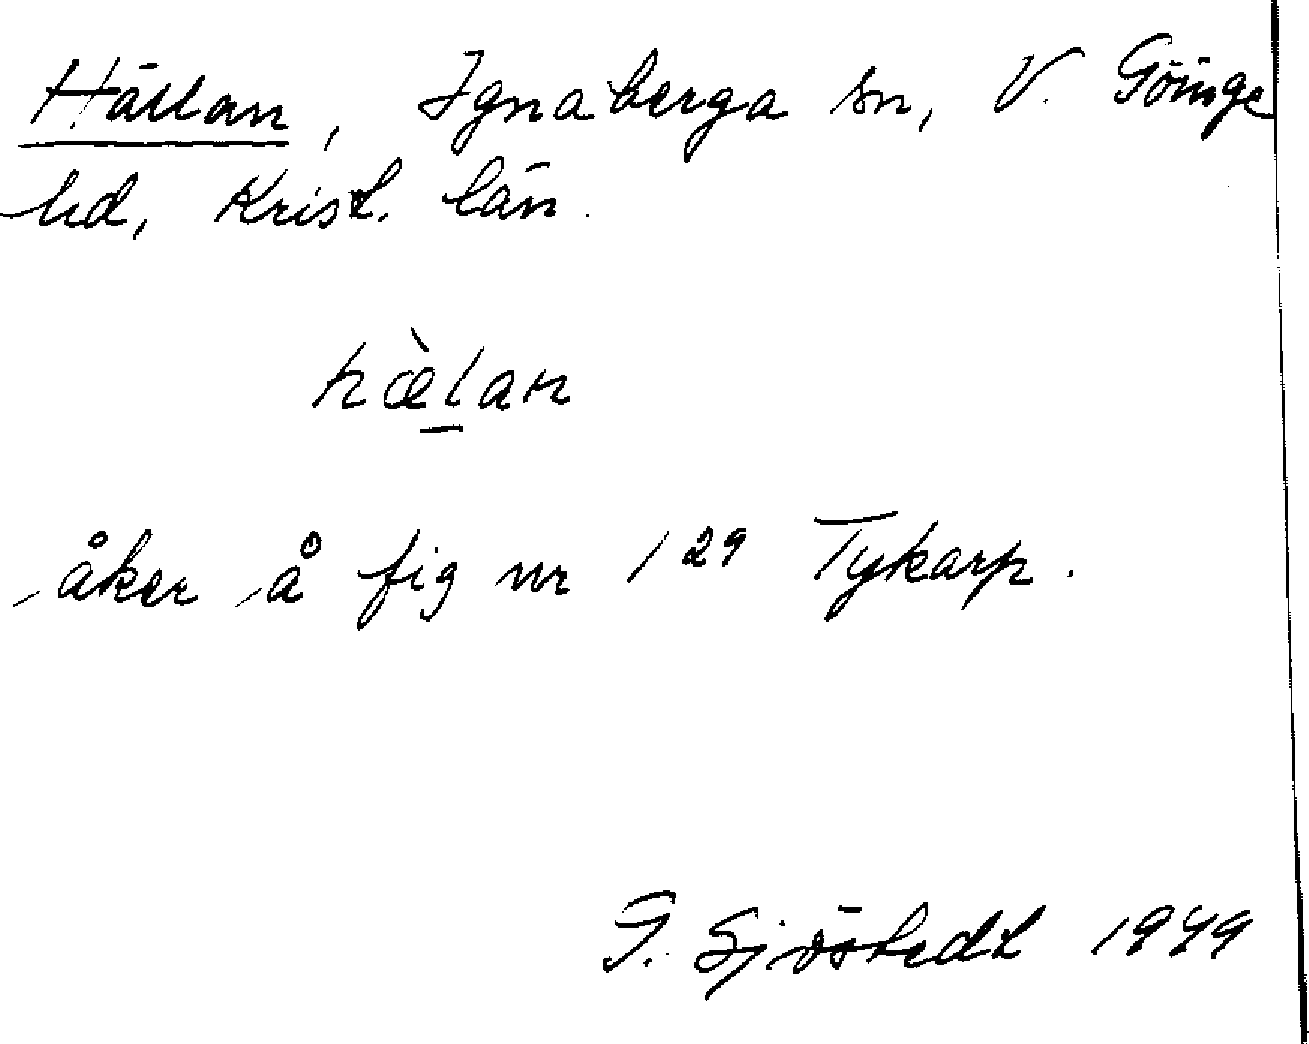 Hällan, Ignaberga sn, V. Göinge
hd, Krist. län.
hæ̀l̠an
åker å fig nr 129 Tykarp.
G. Sjöstedt 1949